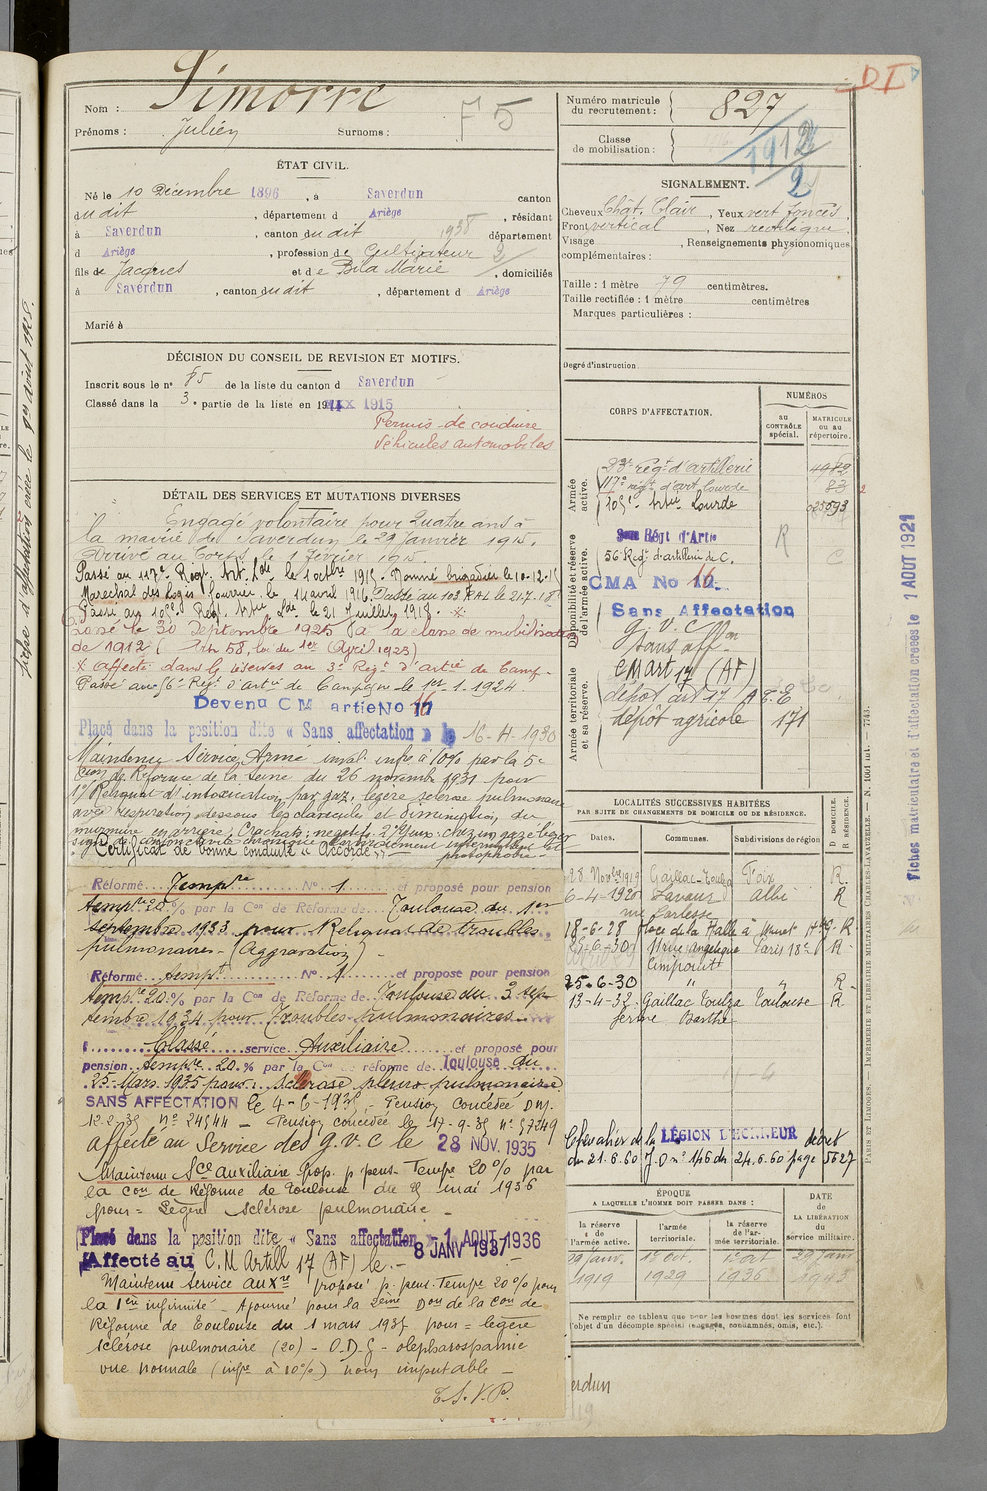 Nom : Simorre
Prénoms : Julien Surnoms : F 5
ÉTAT CIVIL.
Né le 10 Décembre 1896, à Saverdun canton
dudit, département d Ariège, résidant
à Saverdun, canton dudit 1938 département
d Ariège, profession de Cultivateur 2
fils de Jacques et de Bila Marie, domiciliés
à Saverdun, canton dudit, département d Ariège
Marié à
DÉCISION DU CONSEIL DE REVISION ET MOTIFS.
Inscrit sous le n° 85 de la liste du canton d Saverdun
Classé dans la 3e partie de la liste en 1915
Permis de conduire
Véhicules automobiles
DÉTAIL DES SERVICES ET MUTATIONS DIVERSES
Engagé volontaire pour quatre ans à
la mairie de Saverdun le 29 janvier 1915.
Arrivé au Corps le 1 février 1915
Passé au 117e Régt. Art. Lde le 1 octbre 1915. Nommé brigadier le 10-12-15
Marechal des Logis fourrier le 14 avril 1916. Passé au 102 R.A.L le 21.7.18
Passé au 105e Régt. Artie Lde le 21 Juillet 1918. *
Passé le 30 Septembre 1925 à la classe de mobilisation
de 1912 (Art 58, loi du 1er Avril 1923)
* affecté dans les réserves au 3e Régt d'artie de Camp.
Passé au 56e Régt d'artie de Campagne le 1er.1.1924.
Devenu CM artie No 16
Placé dans la position dite « Sans affectation » le 16-4-1930
Maintenu Service Armé inval. infre à 10% par la 5e
Con de Réforme de la Seine du 26 novembre 1931 pour
1°/ Reliquat d'intoxication par gaz, légère sclérose pulmonaire
avec respiration dessous les clavicules et diminution du
murmure en arrière. Crachats : négatifs. 2°/ yeux : chez un gazé léger
signes de conjonctivite chronique
photophobie -
Certificat de bonne conduite « Accordé »
Réformé Tempre N° 1 et proposé pour pension
tempre 20 % par la Con de Réforme de Toulouse du 1er
septembre 1933 pour Reliquat de troubles
pulmonaires - (Aggravation) -
Réformé tempt N° 1 et proposé pour pension
tempre 20 % par la Con de Réforme de Toulouse du 3 sep-
tembre 1934 pour Troubles pulmonaires
Classé service Auxiliaire et proposé pour
pension tempre 20 % par la Con de réforme de Toulouse du
25 Mars 1935 pour : sclérose pleuro pulmonaire
SANS AFFECTATION le 4-6-1935 - Pension concédée DM.
12-2-35 n° 24544 - Pension concédée le 17-9-35 n° 57249
affecté au Service des g.v.c le 28 NOV. 1935
Maintenu Sce auxiliaire Prop. p pens. Tempre 20 % par
la Con de Réforme de Toulouse du 2 mai 1936
pour = Légère sclérose pulmonaire -
Placé dans la position dite « Sans affectation » - 1 AOUT 1936
Affecté au C.M Artill 17 (AF) le - 8 JANV 1937
Maintenu Service auxre proposé p. pens. Tempre 20 % pour
la 1ère infirmité - Ajourné pour la 2ème Don de la Con de
Réforme de Toulouse du 1 mars 1937 pour = légère
sclérose pulmonaire (20) - O.D.G - blepharospasme
vue normale (infre à 10 %) non imputable -
T.S.V.P.
D I
Numéro matricule du recrutement : 827
Classe de mobilisation : 1912
2
SIGNALEMENT.
Cheveux Chât. Clair, Yeux vert foncés.
Front vertical, Nez rectiligne.
Visage , Renseignements physionomiques
complémentaires :
Taille : 1 mètre 79 centimètres.
Taille rectifiée : 1 mètre centimètres
Marques particulières :
Degré d'instruction.
CORPS D'AFFECTATION.
NUMÉROS
au CONTRÔLE spécial.
MATRICULE ou au répertoire.
Armée active.
23e régt d'artillerie 4982
117e régt d'art. lourde 83
105e Artie Lourde
Disponibilité et réserve de l'armée active.
Régt d'Artie
56 Régt d'artillerie de C. R C
CMA No 16
Sans Affectation
g.v.c
Sans affon
Armée territoriale et sa réserve.
CM art 17 (AF)
dépot art 17 A.F.E
dépôt agricole 171
LOCALITÉS SUCCESSIVES HABITÉES
PAR SUITE DE CHANGEMENTS DE DOMICILE OU DE RÉSIDENCE.
Dates. Communes. Subdivisions de région D DOMICILE. R RÉSIDENCE.
28 Novbre 1919 Gaillac-Toulza Foix R
6-4-1920 Lavaur Albi R
18-6-28 Place de la Halle à Muret Hte G. R.
25-6-30 Paris 18e R
25-6-30 " " R
13-4-32 Gaillac Toulza Toulouse R
ferme Barthe
Chevalier de la LÉGION D'HONNEUR décret
du 21.6.60 J.O n° 146 du 24.6.60 page 5627
ÉPOQUE
A LAQUELLE L'HOMME DOIT PASSER DANS :
DATE DE LA LIBÉRATION du service militaire.
la réserve de l'armée active. l'armée territoriale. la réserve de l'armée territoriale.
29 janv. 1er oct. 1er oct 29 janv
1919 1929 1936 1943
Ne remplir ce tableau que pour les hommes dont les services font
l'objet d'un décompte spécial (engagés, condamnés, omis, etc.).
erdun
PARIS ET LIMOGES. — IMPRIMERIE ET LIBRAIRIE MILITAIRES CHARLES-LAVAUZELLE. — N. 1001 int. — 1743.
Fiches matriculaire et d'affectation créées le 1 AOUT 1921